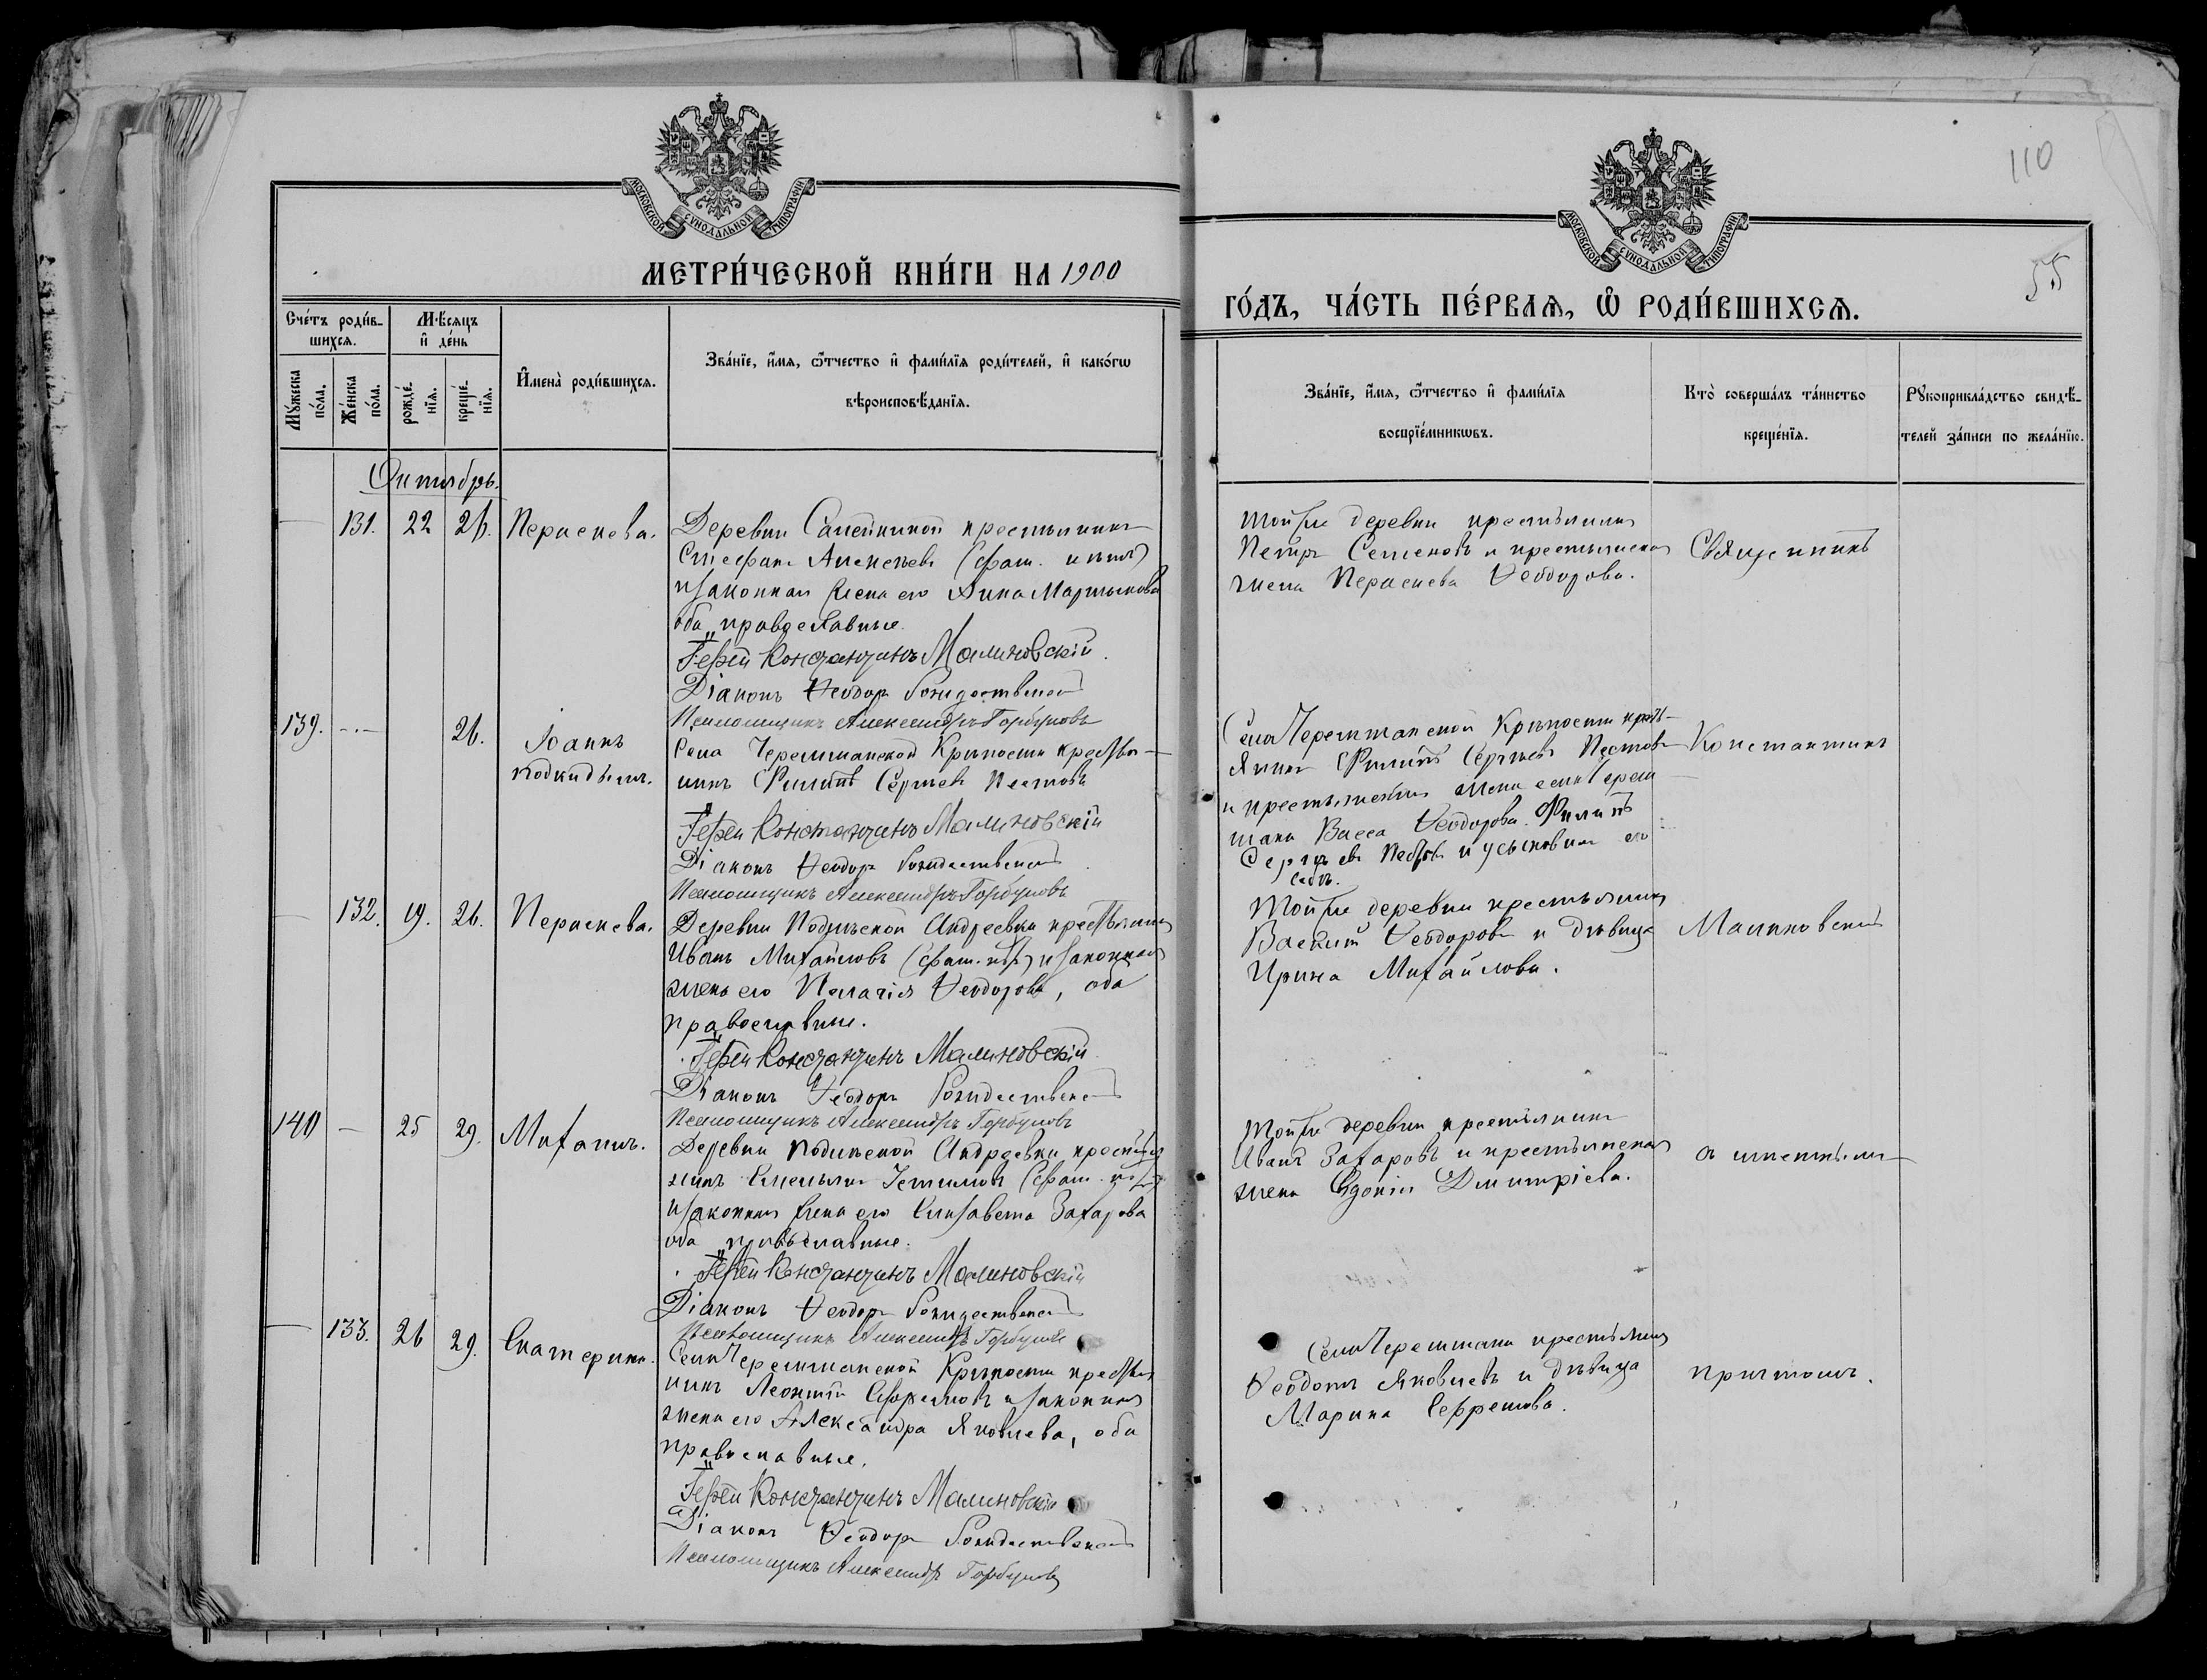 МОСКОВСКОЙ СѴНОДАЛЬНОЙ ТИПОГРАФІИ
МЕТРИ́ЧЕСКОЙ КНИ́ГИ НА 1900
Сче́тъ роди́в-
шихся.
Мѣ́сяцъ
и҆ де́нь
Мꙋ́жеска
по́ла.
Же́нска
по́ла.
рожде́-
нїя.
креще́-
нїя.
И҆мена̀ роди́вшихся.
Зва́нїе, и҆́мя, ѻ҆́тчество и҆ фами́лїя роди́телей, и҆ како́гѡ
вѣроисповѣ́данїя.
Октябрь.
131. 22 26. Параскева.
Деревни крестьянинъ
Стефанъ Алексѣевъ (фам. нѣтъ)
и законная жена его Анна Мартынова
оба православные.
Іерей Константинъ Малиновскій.
Діаконъ Ѳеодоръ Рождественскій
Псаломщикъ Александръ Горбуновъ
139. 26. Іоаннъ
подкидышъ.
Села Черемшанской Крѣпости крестья-
нинъ Филиппъ Сергѣевъ Пестовъ
Іерей Константинъ Малиновскій
Діаконъ Ѳеодоръ Рождественскій
Псаломщикъ Александръ Горбуновъ
132. 19. 26. Параскева.
Деревни Андреевки крестьянинъ
Иванъ Михайловъ (фам. нѣтъ) и законная
жена его Пелагія Ѳеодорова, оба
православные.
Іерей Константинъ Малиновскій
Діаконъ Ѳеодоръ Рождественскій
Псаломщикъ Александръ Горбуновъ
140 — 25 29. Михаилъ.
Деревни Андреевки крестья
нинъ (фам. нѣтъ)
и законная жена его Елизавета Захарова
оба православные.
Іерей Константинъ Малиновскій
Діаконъ Ѳеодоръ Рождественскій
Псаломщикъ Александръ Горбуновъ
133. 26 29. Екатерина.
Села Черемшанской Крѣпости крестья
нинъ Леонтій Ефремовъ и законная
жена его Александра Яковлева, оба
православные.
Іерей Константинъ Малиновскій
Діаконъ Ѳеодоръ Рождественскій
Псаломщикъ Александръ Горбуновъ
110
МОСКОВСКОЙ СѴНОДАЛЬНОЙ ТИПОГРАФІИ
55
ГО́ДЪ, ЧА́СТЬ ПЕ́РВАѦ, Ѡ҆ РОДИ́ВШИХСѦ.
Зва́нїе, и҆́мя, ѻ҆́тчество и҆ фами́лїя
воспрїе́мникѡвъ.
Кто̀ соверша́лъ та́инство
креще́нїя.
Рꙋкоприкла́дство свидѣ́-
телей за́писи по жела́нїю.
Той же деревни крестьянинъ
Петръ Семеновъ и крестьянская
жена Параскева Ѳеодорова.
Священникъ
Села Черемшанской Крѣпости кресть-
янинъ Филиппъ Сергѣевъ Пестовъ
и крестьянская жена села Черем
шана Васса Ѳеодорова. Филиппъ
Сергѣевъ Пестовъ и усыновилъ его
себѣ.
Константинъ
Той же деревни крестьянинъ
Василій Ѳеодоровъ и дѣвица
Ирина Михайлова.
Малиновскій
Той же деревни крестьянинъ
Иванъ Захаровъ и крестьянская
жена Евдокія Димитріева.
съ
Села Черемшана крестьянинъ
Ѳеодотъ Яковлевъ и дѣвица
Марина Ефремова.
причтомъ.